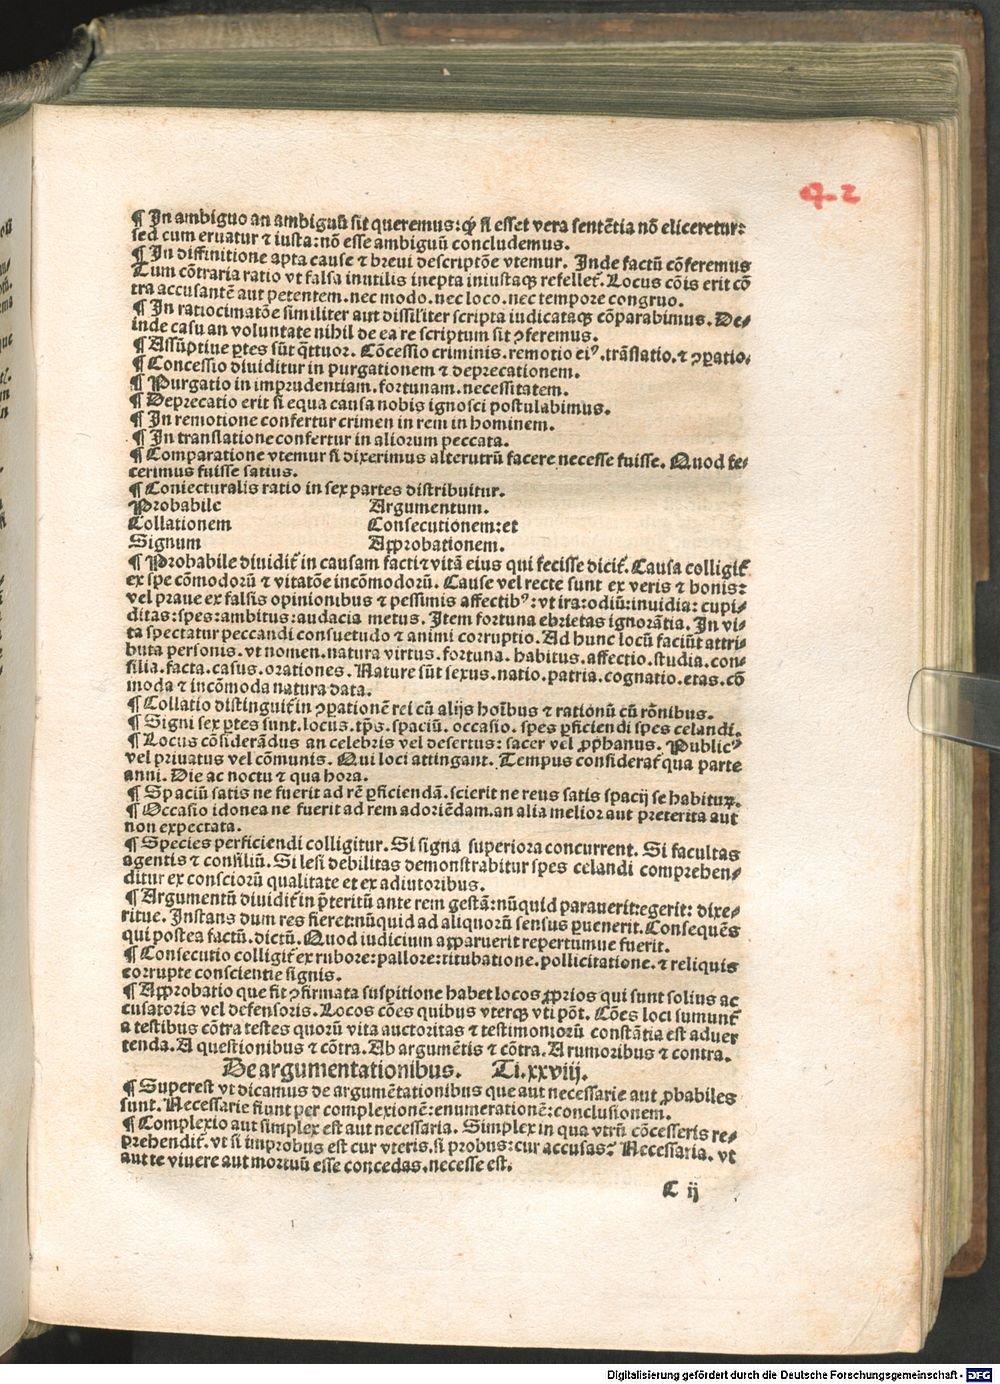 42
¶ In ambiguo an ambiguū sit queremus: ꝙ si esset vera sentētia nō eliceretur:
sed cum eruatur ⁊ iusta: nō esse ambiguū concludemus.
¶ In diffinitione apta cause ⁊ breui descriptōe vtemur. Inde factū cōferemus
Tum cōtraria ratio vt falsa inutilis inepta iniustaqꝫ refellet᷑. Locus cōis erit cō
tra accusantē aut petentem. nec modo. nec loco. nec tempore congruo.
¶ In ratiocinatōe similiter aut dissiliter scripta iudicataqꝫ cōparabimus. De⸗
inde casu an voluntate nihil de ea re scriptum sit ꝯferemus.
¶ Assūptiue ꝑtes sūt q̄ttuor. Cōcessio criminis. remotio eiꝰ. trāslatio. ⁊ ꝯꝑatio.
¶ Concessio diuiditur in purgationem ⁊ deprecationem.
¶ Purgatio in imprudentiam. fortunam. necessitatem.
¶ Deprecatio erit si equa causa nobis ignosci postulabimus.
¶ In remotione confertur crimen in rem in hominem.
¶ In translatione confertur in aliorum peccata.
¶ Comparatione vtemur si dixerimus alterutrū facere necesse fuisse. Quod fe⸗
cerimus fuisse satius.
¶ Coniecturalis ratio in sex partes distribuitur.
Probabile Argumentum.
Collationem Consecutionem: et
Signum Approbationem.
¶ Probabile diuidit᷑ in causam facti ⁊ vitā eius qui fecisse dicit᷑. Causa colligit᷑
ex spe cōmodorū ⁊ vitatōe incōmodorū. Cause vel recte sunt ex veris ⁊ bonis:
vel praue ex falsis opinionibus ⁊ pessimis affectibꝰ: vt ira: odiū: inuidia: cupi⸗
ditas: spes: ambitus: audacia metus. Item fortuna ebrietas ignorātia. In vi⸗
ta spectatur peccandi consuetudo ⁊ animi corruptio. Ad hunc locū faciūt attri⸗
buta personis. vt nomen. natura virtus. fortuna. habitus. affectio. studia. con⸗
silia. facta. casus. orationes. Nature sūt sexus. natio. patria. cognatio. etas. cō
moda ⁊ incōmoda natura data.
¶ Collatio distinguit᷑ in ꝯꝑationē rei cū alijs hoībus ⁊ rationū cū rōnibus.
¶ Signi sex ꝑtes sunt. locus. tꝑs. spaciū. occasio. spes ꝑficiendi spes celandi.
¶ Locus cōsiderādus an celebris vel desertus: sacer vel ꝓphanus. Publicꝰ
vel priuatus vel cōmunis. Qui loci attingant. Tempus considerat᷑ qua parte
anni. Die ac noctu ⁊ qua hora.
¶ Spaciū satis ne fuerit ad rē ꝑficiendā. scierit ne reus satis spacij se habiturꝫ.
¶ Occasio idonea ne fuerit ad rem adoriēdam. an alia melior aut preterita aut
non expectata.
¶ Species perficiendi colligitur. Si signa superiora concurrent. Si facultas
agentis ⁊ consiliū. Si lesi debilitas demonstrabitur spes celandi comprehen⸗
ditur ex consciorū qualitate et ex adiutoribus.
¶ Argumentū diuidit᷑ in p̄teritū ante rem gestā: nūquid parauerit: egerit: dixe⸗
ritue. Instans dum res fieret: nūquid ad aliquorū sensus ꝑuenerit. Consequēs
qui postea factū. dictū. Quod iudicium apparuerit repertumue fuerit.
¶ Consecutio colligit᷑ ex rubore: pallore: titubatione. pollicitatione. ⁊ reliquis
corrupte conscientie signis.
¶ Approbatio que fit ꝯfirmata suspitione habet locos ꝓprios qui sunt solius ac
cusatoris vel defensoris. Locos cōes quibus vterqꝫ vti pōt. Cōes loci sumunt᷑
a testibus cōtra testes quorū vita auctoritas ⁊ testimoniorū constātia est aduer
tenda. A questionibus ⁊ cōtra. Ab argumētis ⁊ cōtra. A rumoribus ⁊ contra.
De argumentationibus. Ti. xxviij.
¶ Superest vt dicamus de argumētationibus que aut necessarie aut ꝓbabiles
sunt. Necessarie fiunt per complexionē: enumerationē: conclusionem.
¶ Complexio aut simplex est aut necessaria. Simplex in qua vtrū cōcesseris re⸗
prehendit᷑. vt si improbus est cur vteris. si probus: cur accusas? Necessaria. vt
aut te viuere aut mortuū esse concedas. necesse est.
C ij
Digitalisierung gefördert durch die Deutsche Forschungsgemeinschaft - DFG